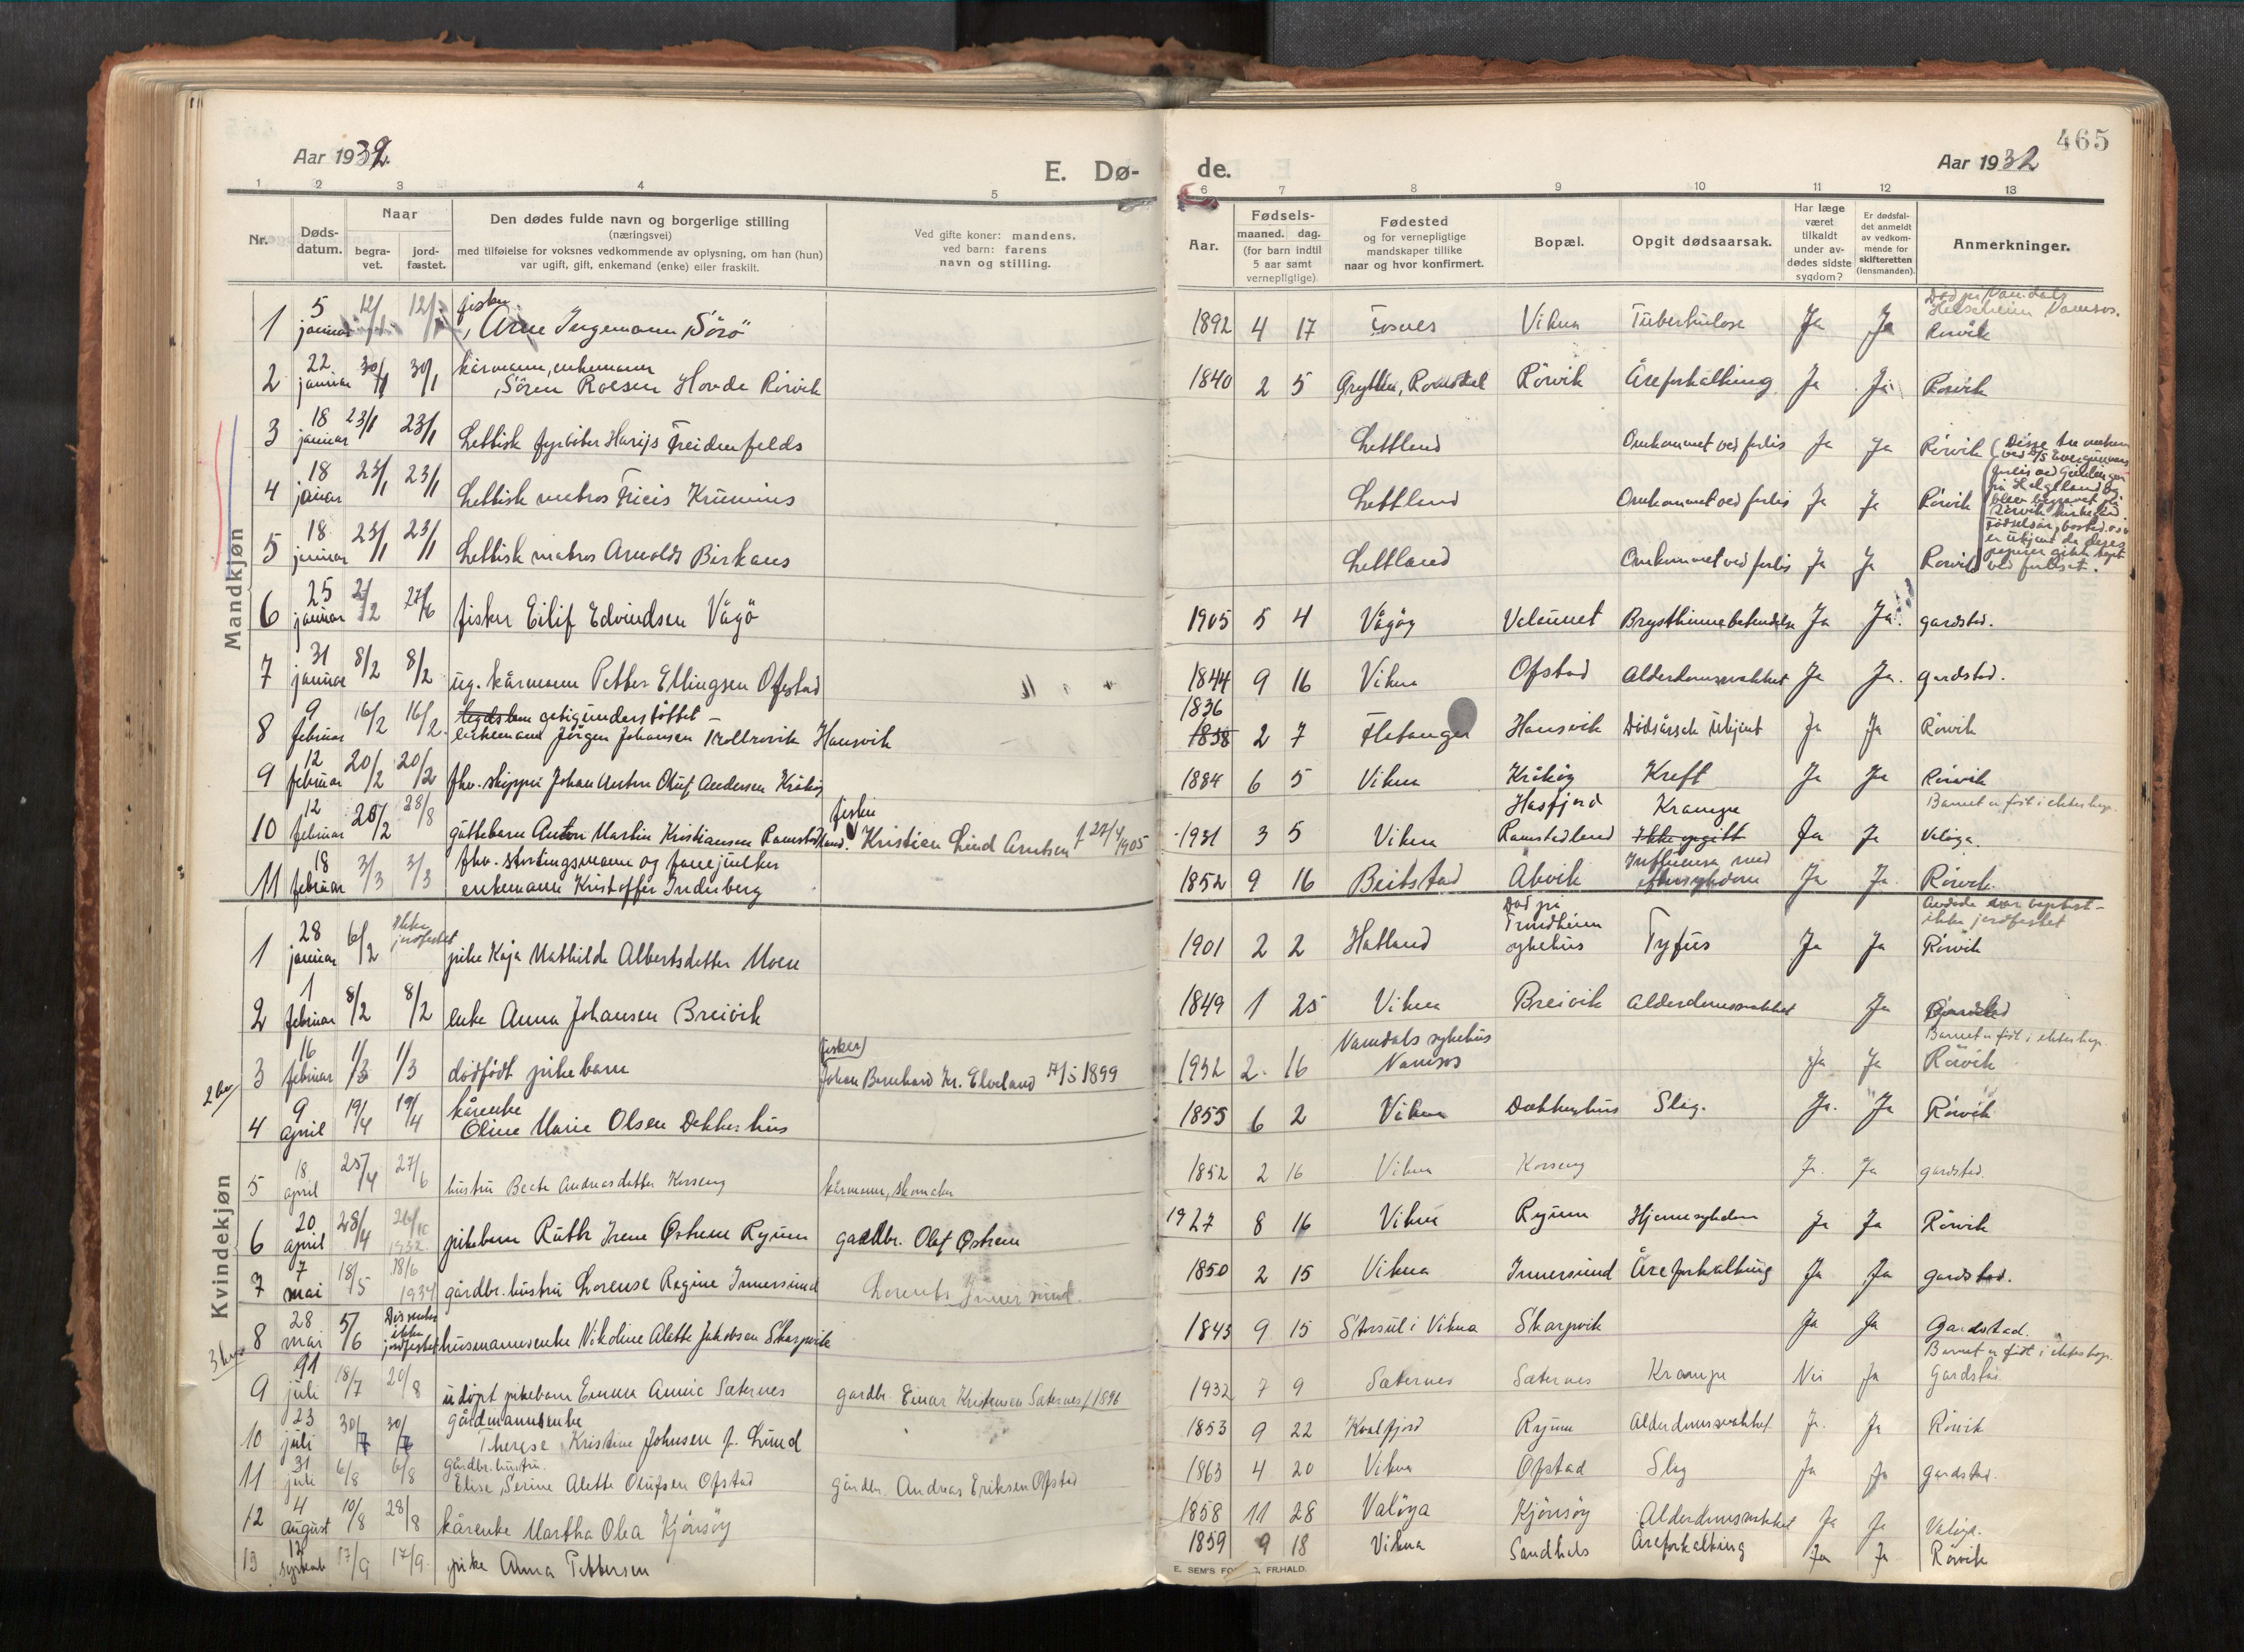 465
Aar 1932.
E. Dø-
de.
Aar 1932
1 2 3 4 5 6 7 7 8 9 10 11 12 13
Nr.
Døds-
datum.
Naar
begra-
vet.
jord-
fæstet.
Den dødes fulde navn og borgerlige stilling
(næringsvei)
med tilføielse for voksnes vedkommende av oplysning, om han (hun)
var ugift, gift, enkemand (enke) eller fraskilt.
Ved gifte koner: mandens,
ved barn: farens
navn og stilling.
Aar.
Fødsels-
maaned. dag.
(for barn indtil
5 aar samt
vernepligtige)
Fødested
og for vernepligtige
mandskaper tillike
naar og hvor konfirmert.
Bopæl.
Opgit dødsaarsak.
Har læge
været
tilkaldt
under av-
dødes sidste
sygdom?
Er dødsfal-
det anmeldt
av vedkom-
mende for
skifteretten
(lensmanden).
Anmerkninger.
Mandkjøn
1 5 januar 12/1 12/1 fisker Arne Ingemann Sörö 1892 4 17 Fosnes Vikna Tuberkulose Ja Ja Død på Namdals Namsos. Rörvik
2 22 januar 30/1 30/1 kårmann, enkemann Sören Roesen Hovde Rörvik 1840 2 5 Grytten, Romsdal Rörvik Åreforkalking Ja Ja Rörvik
3 18 januar 23/1 23/1 Lettisk fyrböter Harijs Freidenfelds Lettland Omkommet ved forlis Ja Ja Rörvik
4 18 januar 23/1 23/1 Lettisk matros Fricis Krumins Lettland Omkommet ved forlis Ja Ja Rörvik
5 18 januar 23/1 23/1 Lettisk matros Arnolds Birkans Lettland Omkommet ved forlis Ja Ja Rörvik
(Disse tre omkom
ved
forlis ved
på Helgeland og
blev begravet på
Rörvik kirkegård
Fødselsår, bosted o.s.v.
er ukjent da deres
papirer gikk tapt
ved forliset.
6 25 januar 2/2 27/6 fisker Eilif Edvindsen Vågö 1905 5 4 Vågöy Valöunet Brysthinnebetendelse Ja Ja. Gardstad.
7 31 januar 8/2 8/2 ug. kårmann Petter Ellingsen Ofstad 1844 9 16 Vikna Ofstad Alderdomssvakhet Ja Ja. Gardstad.
8 9 februar 16/2 16/2. legdslem getigunderstöttet - enkemann Jörgen Johansen Trollrovik Hansvik 1836 1838 2 7 Flatanger Hansvik Dödsårsak ukjent Ja Ja Rörvik
9 12 februar 20/2 20/2 fhv. skipper Johan Anton Oluf Andersen Kråköy 1884 6 5 Vikna Kråköy Kreft Ja Ja Rörvik
10 12 februar 20/2 28/8 guttebarn Anton Martin Kristiansen Ramstadland. fisker Kristian Lind Arntsen f 27/4 1905 1931 3 5 Vikna Hasfjord Ramstadland Krampe Ikke opgitt Ja Ja Barnet er født i ekteskap. Valöya.
11 18 februar 3/3 3/3 fhv. stortingsmann og fanejunker enkemann Kristoffer Inderberg 1852 9 16 Beitstad Åkvik Influensa med eftersykdom Ja Ja Rörvik.
Kvindekjøn
1 28 januar 6/2 Ikke jordfestet pike Kaja Mathilde Albertsdatter Moen 1901 2 2 Hatland Død på Trondheim sykehus Tyfus Ja Ja Avdøde var baptist - ikke jordfestet Rörvik
2 1 februar 8/2 8/2 enke Anna Johansen Breivik 1849 1 25 Vikna Breivik Alderdomssvakhet Ja Gardstad
3 16 februar 1/3 1/3 dödfödt pikebarn (fisker) Johan Bernhard Kr. Elveland 17/5 1899 1932 2. 16 Namdals sykehus Namsos Ja Ja Barnet er født i ekteskap. Rörvik
4 9 april 19/4 19/4 kårenke Oline Marie Olsen Dekkerhus 1855 6 2 Vikna Dekkerhus Slag. Ja. Ja Rörvik
5 18 april 25/4 27/6 hustru Beate Andreasdatter Korseng kårmann, skomaker 1852 2 16 Vikna Korseng Ja. Ja Gardstad.
6 20 april 28/4 26/10 1932 pikebarn Ruth Irene Østrem Ryum gardbr. Olaf Østrem 1927 8 16 Vikna Ryum Hjernesykdom Ja Ja Rörvik
7 7 mai 18/5 18/6 1934 gårdbr. hustru Lorense Regine Innersund Lorents Innersund. 1850 2 15 Vikna Innersund Åreforkalking Ja Ja Gardstad.
8 28 mai 5/6 Dissenter ikke jordfestet husmannsenke Nikoline Alette Jakobsen Skarpvik 1843 9 15 Storsul i Vikna Skarpvik Ja Ja Gardstad.
9 11 juli 18/7 20/8 udöpt pikebarn Emma Annie Sæternes gardbr. Einar Kristensen Sæternes f 1896 1932 7 9 Sæternes Sæternes Krampe Nei Ja Barnet er født i ekteskap. Gardstad.
10 23 juli 30/7 30/7 gårdmannsenke Therese Kristine Johnsen f. Lund 1853 9 22 Kvalfjord Ryum Alderdomssvakhet Ja. Ja Rörvik
11 31 juli 6/8 6/8 gårdbr. hustru. Elise Serine Alette Olufsen Ofstad gårdbr. Andreas Eriksen Ofstad 1863 4 20 Vikna Ofstad Slag Ja Ja Gardstad.
12 4 august 10/8 28/8 kårenke Martha Olea Kjönsöy 1858 11 28 Valöya Kjönsöy Alderdomssvakhet Ja Ja Valöya.
13 12 septemb 17/9 17/9. pike Anna Pettersen 1859 9 18 Vikna Sandhals Åreforkalking Ja Ja Rörvik
E. SEM'S FORLAG, FR.HALD.